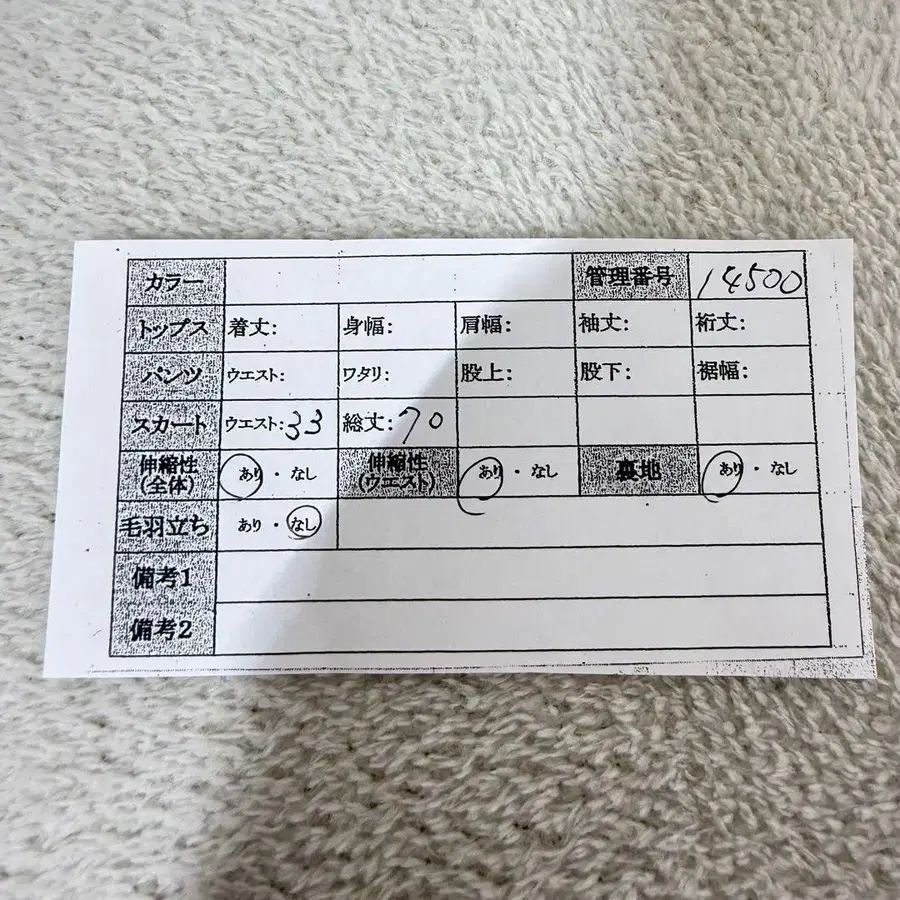 カラー 管理番号 14500
トップス 着丈: 身幅: 肩幅: 袖丈: 裄丈:
パンツ ウエスト: ワタリ: 股上: 股下: 裾幅:
スカート ウエスト:33 総丈:70
伸縮性(全体) あり・なし 伸縮性(ウエスト) あり・なし 裏地 あり・なし
毛羽立ち あり・なし
備考1
備考2